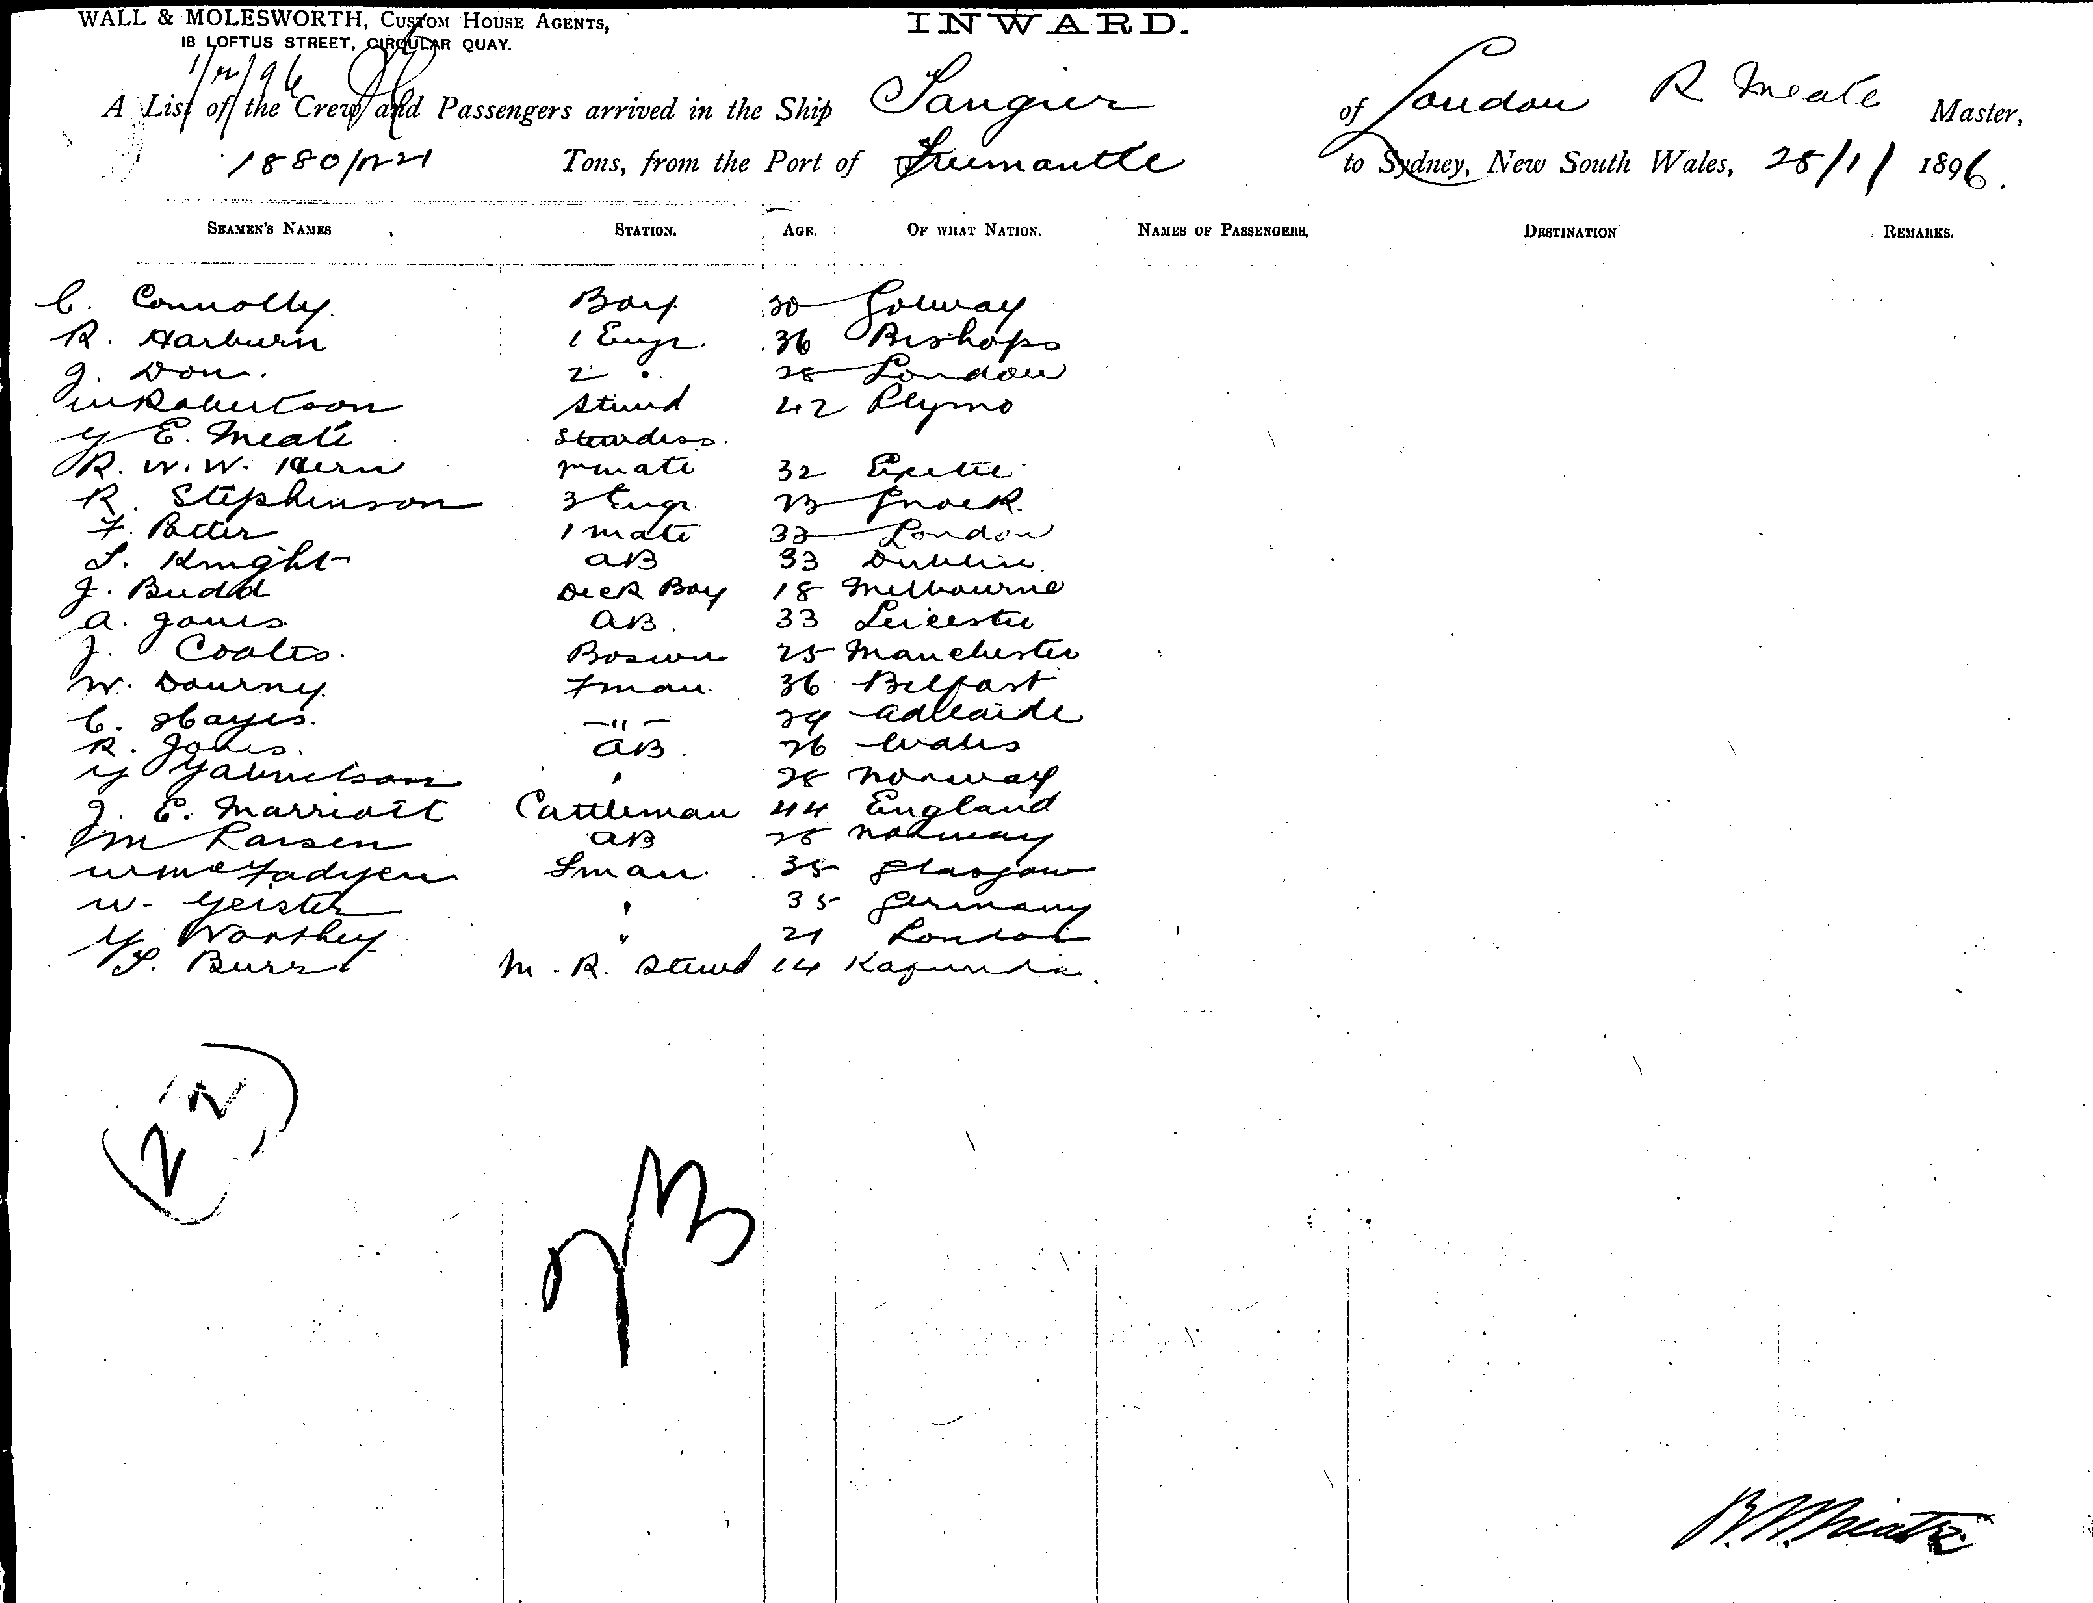 WALL & MOLESWORTH, CUSTOM HOUSE AGENTS,
18 LOFTUS STREET, CIRCULAR QUAY.
INWARD.
A List of the Crew and Passengers arrived in the Ship Tangier of London R Meate Master,
Tons, from the Port of Fremantle to Sydney, New South Wales, 28/1/ 1896.
SEAMEN'S NAMES STATION. AGE. OF WHAT NATION. NAMES OF PASSENGERS. DESTINATION REMARKS.
C. Connolly Boy 30 Golway
R. Harburn 1 Engr. 36 Bishops
J. Don. 2 " 28 London
Robertson Stwd 42 Plymo
E. Meate Stewardess.
R. W. W. Hern 2 mate 32 Exeter
R. Stephenson 3 Engr 23
F. Potter 1 mate 33 London
T. Knight AB 33 Dublin.
J. Budd Deck Boy 18 Melbourne
A. Jones AB. 33 Leicester
J. Coates. Boswn 25 Manchester
W. Dourny Fman. 36 Belfast
C. Hayes. -"- 29 Adelaide
R. Jones. AB. 26 Wales
28 Norway
J. E. Marriott Cattleman 44 England
M Larsen AB 28 Norway
W McFadyen Fman. 35 Glasgow
W. Geister " 35 Germany
Worthey " 21 London
Burr M. R. Stewd 14 Kapunda.
(22)